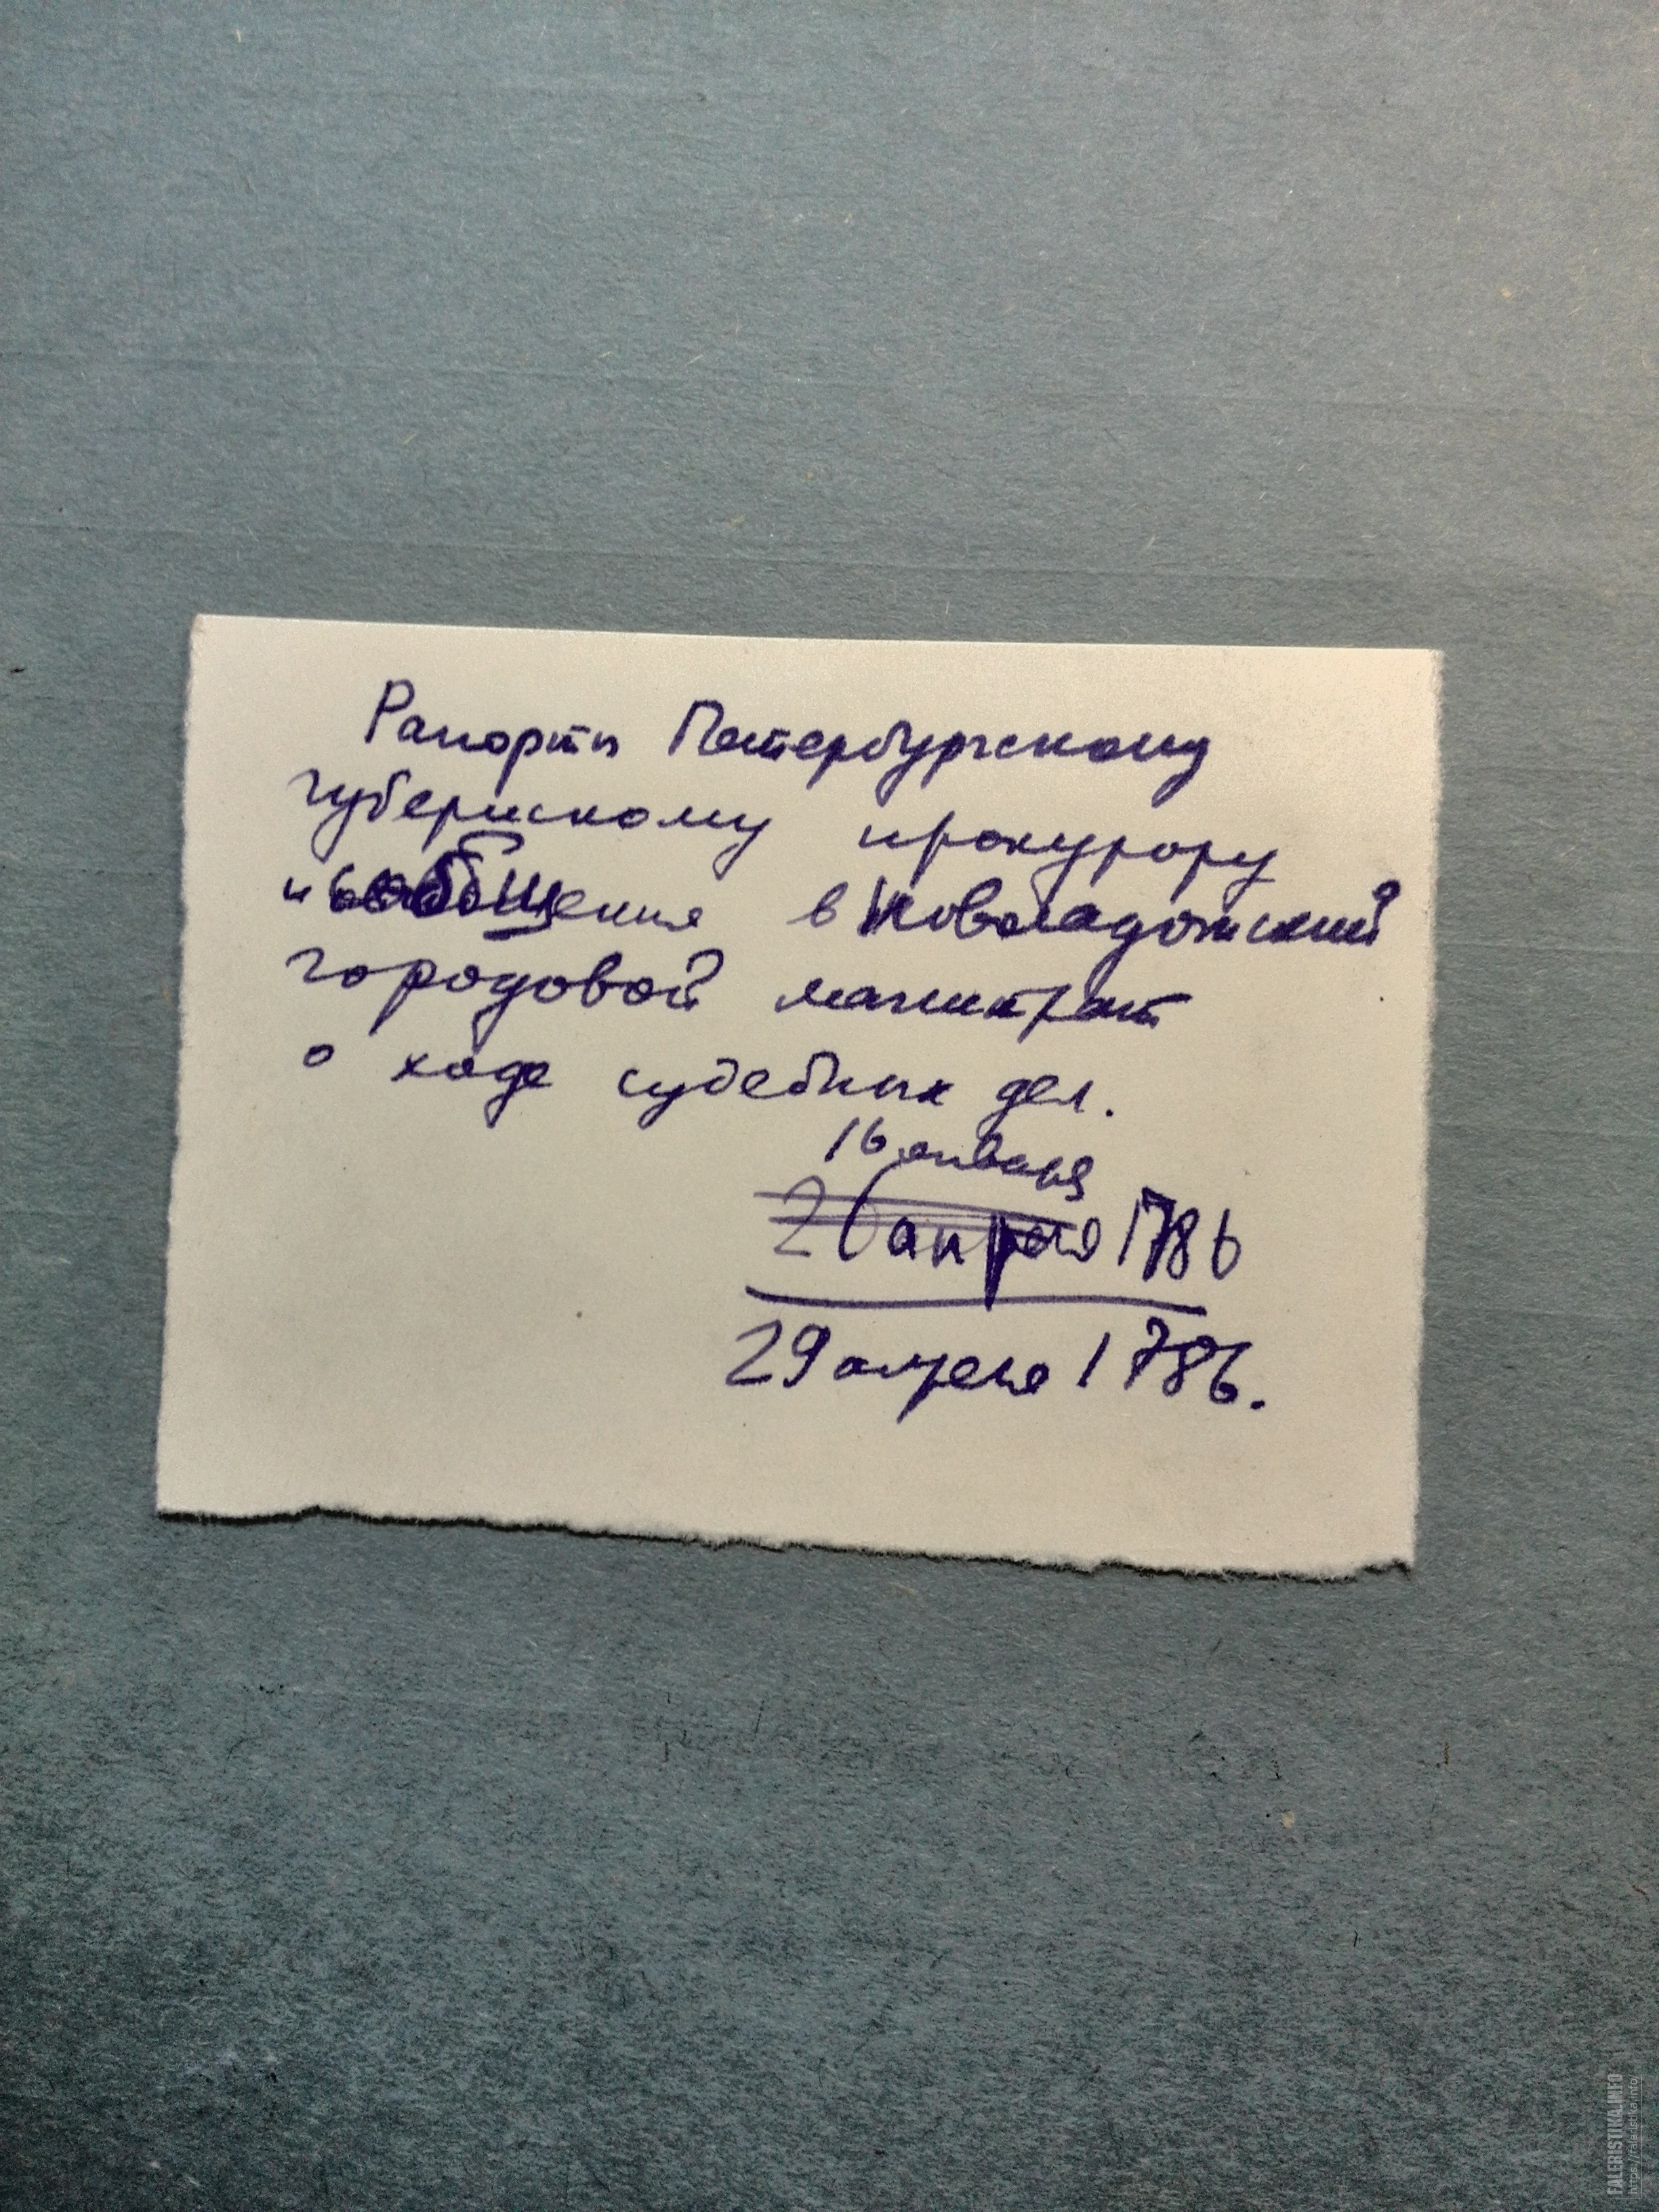 Рапорты Петербургскому
губернскому прокурору
и сообщения в Новоладожский
городовой магистрат
о ходе судебных дел.
16 января
26 апреля 1786
29 апреля 1786.
FALERISTIKA.INFO
https://faleristika.info/